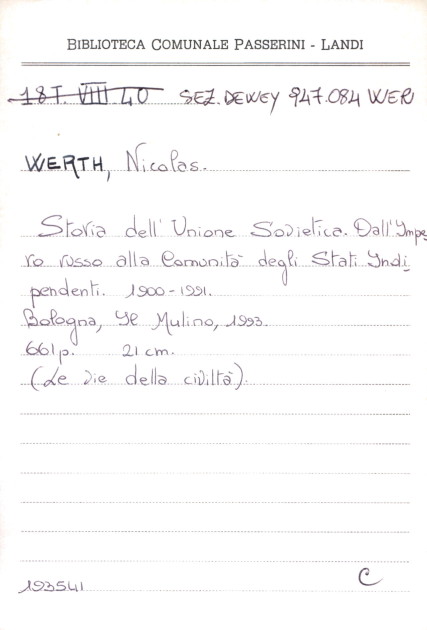 BIBLIOTECA COMUNALE PASSERINI - LANDI
18T. VIII 40 SEZ. DEWEY 947.084 WER
WERTH, Nicolas.
Storia dell'Unione Sovietica. Dall'Impe
ro russo alla Comunità degli Stati Indi
pendenti. 1900-1991.
Bologna, Il Mulino, 1993.
661p. 21 cm.
(Le vie della civiltà).
193541 C